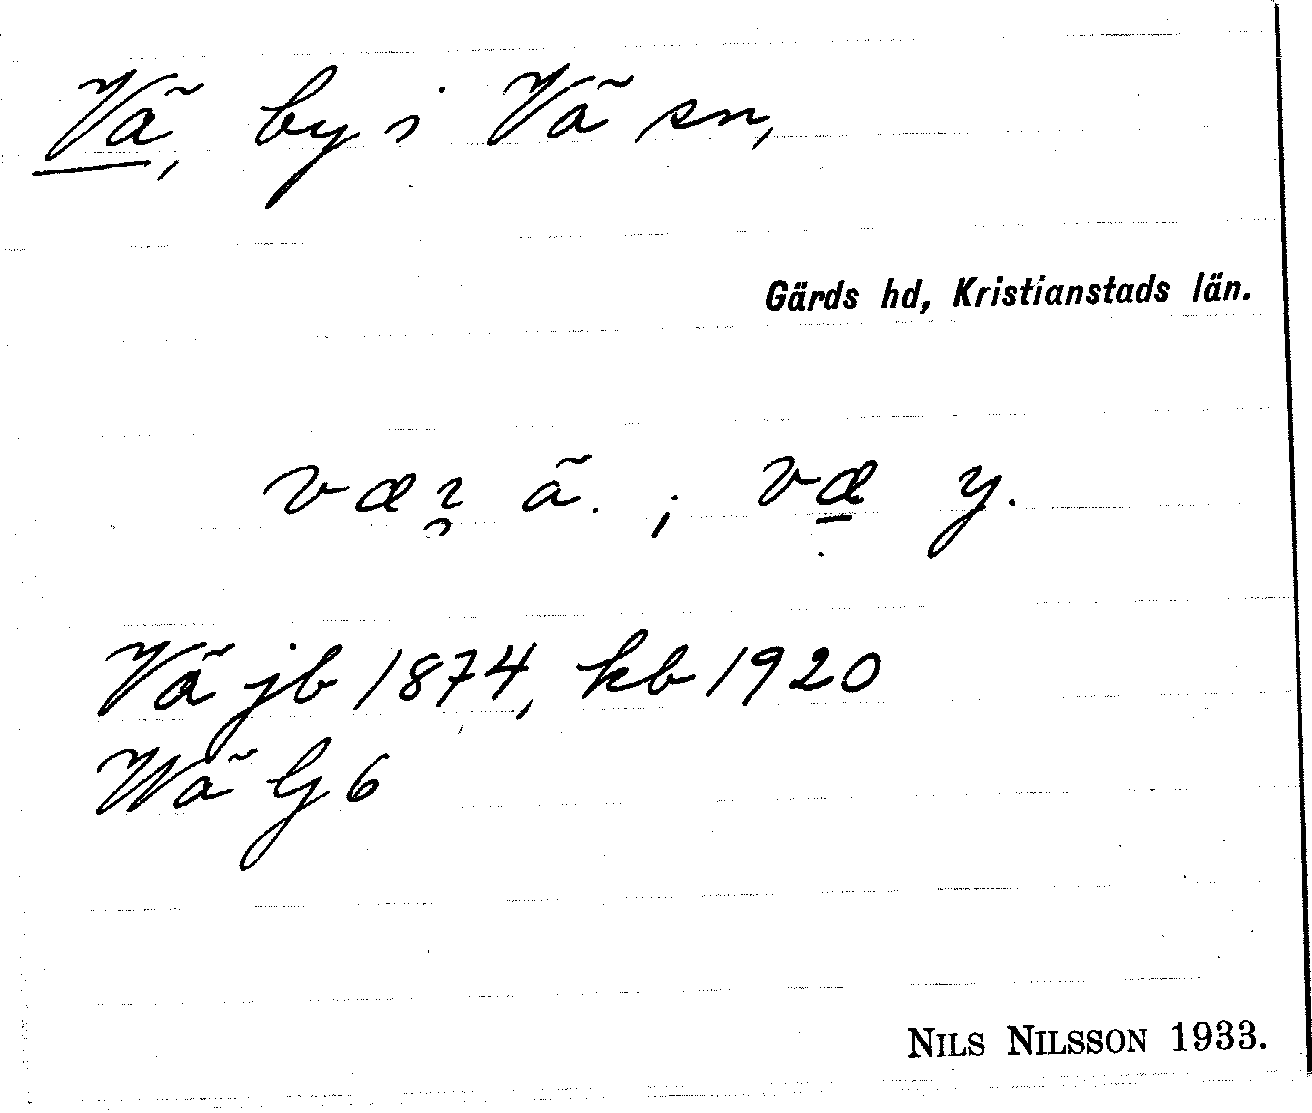 Vä, by i Vä sn,
Gärds hd, Kristianstads län.
væ ä. ; væ y.
Vä jb 1874, kb 1920
Wä G 6
NILS NILSSON 1933.